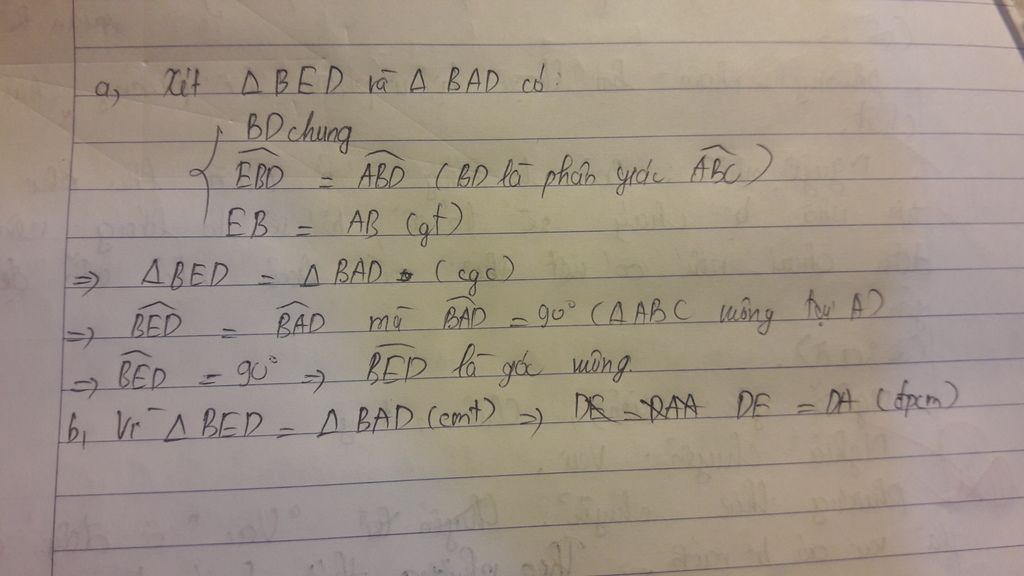 a, Xét Δ BED và Δ BAD có:
BD chung
EBD = ABD (BD là phân giác ABC)
EB = AB (gt)
=> Δ BED = Δ BAD (cgc)
=> BED = BAD mà BAD = 90° (Δ ABC vuông tại A)
=> BED = 90° => BED là góc vuông.
b, Vì Δ BED = Δ BAD (cmt) => DE = DA (đpcm)